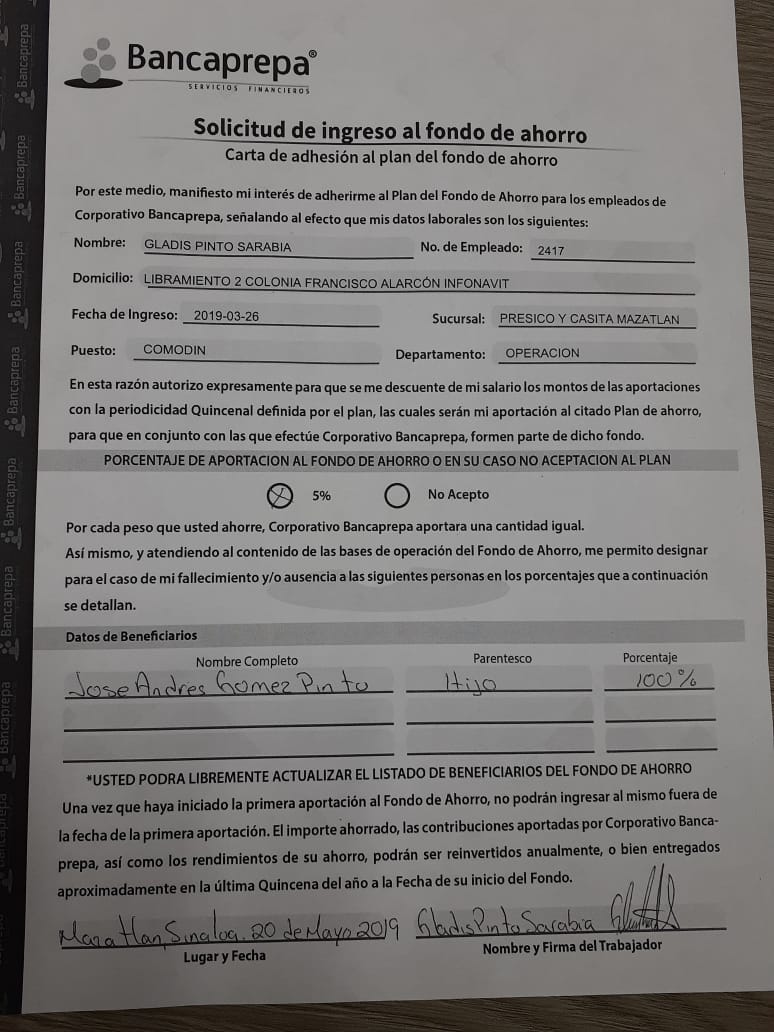 Bancaprepa®
SERVICIOS FINANCIEROS
Solicitud de ingreso al fondo de ahorro
Carta de adhesión al plan del fondo de ahorro
Por este medio, manifiesto mi interés de adherirme al Plan del Fondo de Ahorro para los empleados de
Corporativo Bancaprepa, señalando al efecto que mis datos laborales son los siguientes:
Nombre: GLADIS PINTO SARABIA No. de Empleado: 2417
Domicilio: LIBRAMIENTO 2 COLONIA FRANCISCO ALARCÓN INFONAVIT
Fecha de Ingreso: 2019-03-26 Sucursal: PRESICO Y CASITA MAZATLAN
Puesto: COMODIN Departamento: OPERACION
En esta razón autorizo expresamente para que se me descuente de mi salario los montos de las aportaciones
con la periodicidad Quincenal definida por el plan, las cuales serán mi aportación al citado Plan de ahorro,
para que en conjunto con las que efectúe Corporativo Bancaprepa, formen parte de dicho fondo.
PORCENTAJE DE APORTACION AL FONDO DE AHORRO O EN SU CASO NO ACEPTACION AL PLAN
5% No Acepto
Por cada peso que usted ahorre, Corporativo Bancaprepa aportara una cantidad igual.
Así mismo, y atendiendo al contenido de las bases de operación del Fondo de Ahorro, me permito designar
para el caso de mi fallecimiento y/o ausencia a las siguientes personas en los porcentajes que a continuación
se detallan.
Datos de Beneficiarios
Nombre Completo Parentesco Porcentaje
Jose Andres Gomez Pinto Hijo 100%
*USTED PODRA LIBREMENTE ACTUALIZAR EL LISTADO DE BENEFICIARIOS DEL FONDO DE AHORRO
Una vez que haya iniciado la primera aportación al Fondo de Ahorro, no podrán ingresar al mismo fuera de
la fecha de la primera aportación. El importe ahorrado, las contribuciones aportadas por Corporativo Banca-
prepa, así como los rendimientos de su ahorro, podrán ser reinvertidos anualmente, o bien entregados
aproximadamente en la última Quincena del año a la Fecha de su inicio del Fondo.
Mazatlan, Sinaloa. 20 de Mayo 2019 Gladis Pinto Sarabia
Lugar y Fecha Nombre y Firma del Trabajador